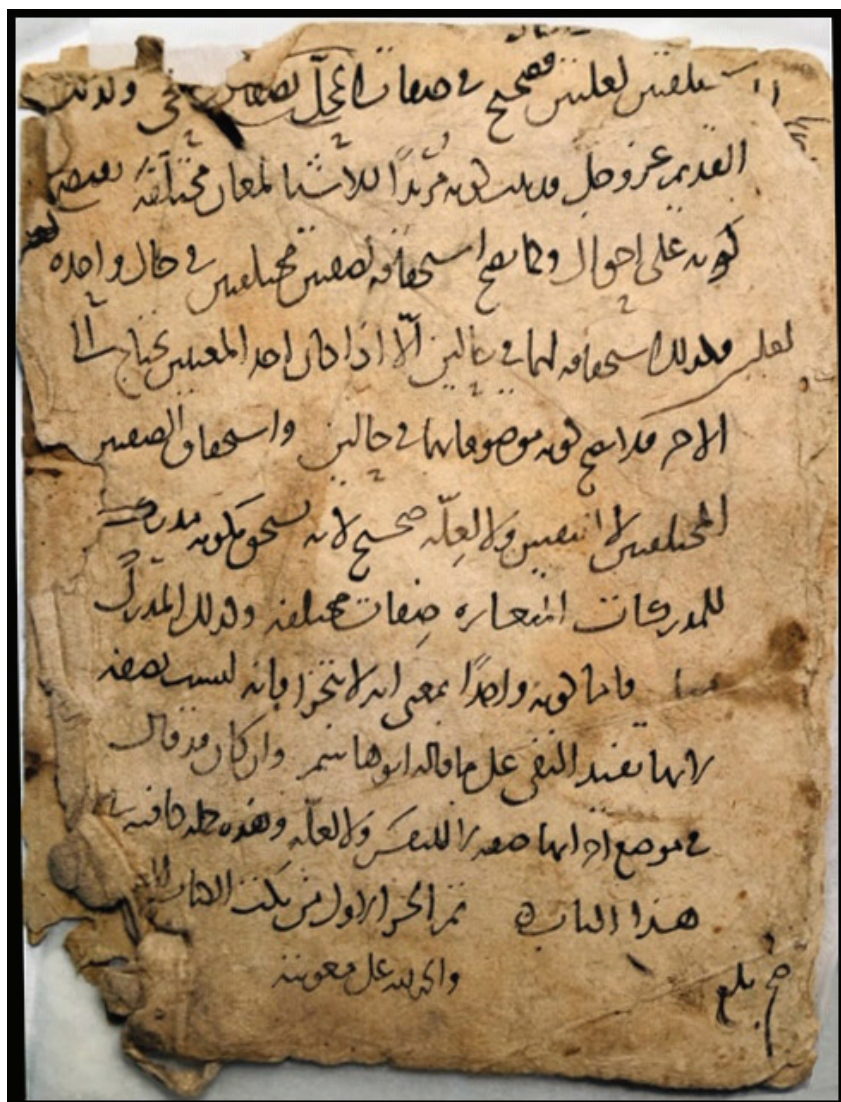 مختلفتين لعلتين فصحيح في صفات المحل وكذلك
القديم عز وجل قد يستحق كونه مريدًا للاشيا لمعان مختلفة
كونه على احوال وكما يصح استحقاقه لصفتين مختلفتين في حال واحده
فكذلك استحقاقه لهما في حالين الّا اذا كان احد المعنيين يحتاج الى
الاخر فلا يصح كونه موصوفا بهما في حالين واستحقاق الصفتين
المختلفتين لا لنفس ولا لعلّه صحيح لانه يستحق بكونه مدركا
للمدركات المتغايره صفات مختلفه وكذلك المدرك
منا فاما كونه واحدًا بمعنى انه لا يتجزا فانه ليست بصفه
لانها تفيد النفي على ما قاله ابو هاشم وان كان قد قال
في موضع اخر انها صفه لا للنفس ولا لعلّه وهذه جمله كافيه في
هذا الباب تم الجز الاول من نكت الكتاب
والحمد لله على معونته
بلغ